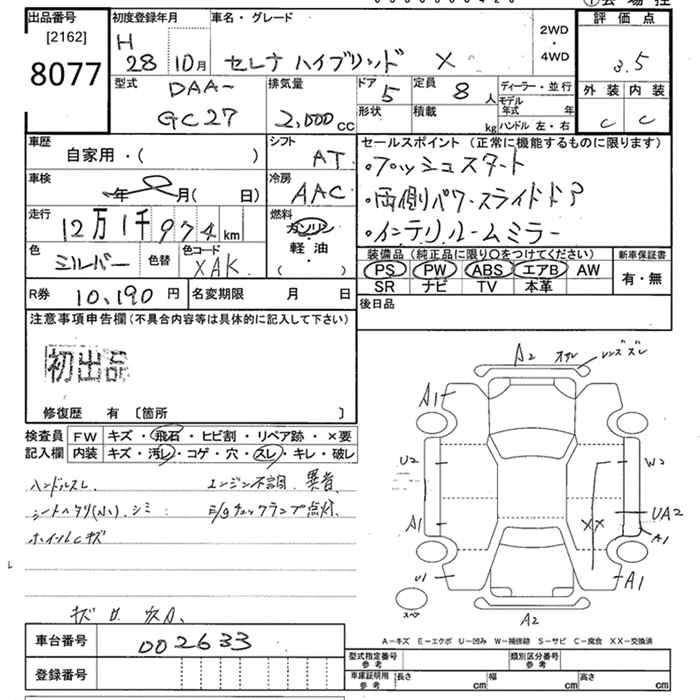 出品番号
[2162]
8077
初度登録年月
H
28 10月
車名・グレード
セレナ ハイブリッド X
2WD
・
4WD
評価点
3.5
外装 内装
C C
型式
DAA-
GC27
排気量
2,000 CC
ドア
5
形状
定員
8 人
積載
kg
ディーラー・並行
モデル年式 年
ハンドル 左・右
車歴
自家用・( )
シフト
AT
車検
年 月( 日)
冷房
AAC
走行
12万1千974 km
燃料
ガソリン
・
軽油
( )
色
シルバー
色替
色コード
XAK
R券 10,190 円
名変期限 月 日
セールスポイント (正常に機能するものに限ります)
・プッシュスタート
・両側パワースライドドア
・インテリルームミラー
装備品 (純正品に限り○をつけてください)
PS PW ABS エアB AW
SR ナビ TV 本革
新車保証書
有・無
後日品
注意事項申告欄 (不具合内容等は具体的に記入して下さい)
初出品
修復歴 有 〔箇所 〕
検査員
記入欄
FW キズ・飛石・ヒビ割・リペア跡・×要
内装 キズ・汚レ・コゲ・穴・スレ・キレ・破レ
ハンドルスレ エンジン不調 異音
シートヘタリ(小)、シミ E/gチェックランプ点灯
ホイルCキズ
A2
レンズズレ
A1
U2
A1
U1
W2
XX
UA2
A1
A1
スペア
A2
A-キズ E-エクボ U-凹み W-補修跡 S-サビ C-腐食 XX-交換済
車台番号
002633
登録番号
型式指定番号
参考
類別区分番号
参考
車庫証明用
参考
長さ cm
幅 cm
高さ cm